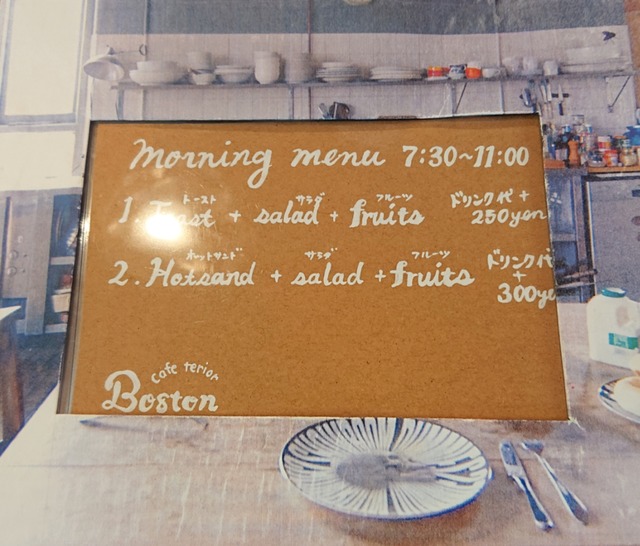 morning menu 7:30~11:00
トースト サラダ フルーツ ドリンク代 +
1. Toast + salad + fruits 250yen
ホットサンド サラダ フルーツ ドリンク代
2. Hotsand + salad + fruits +
300ye
cafe terior
Boston